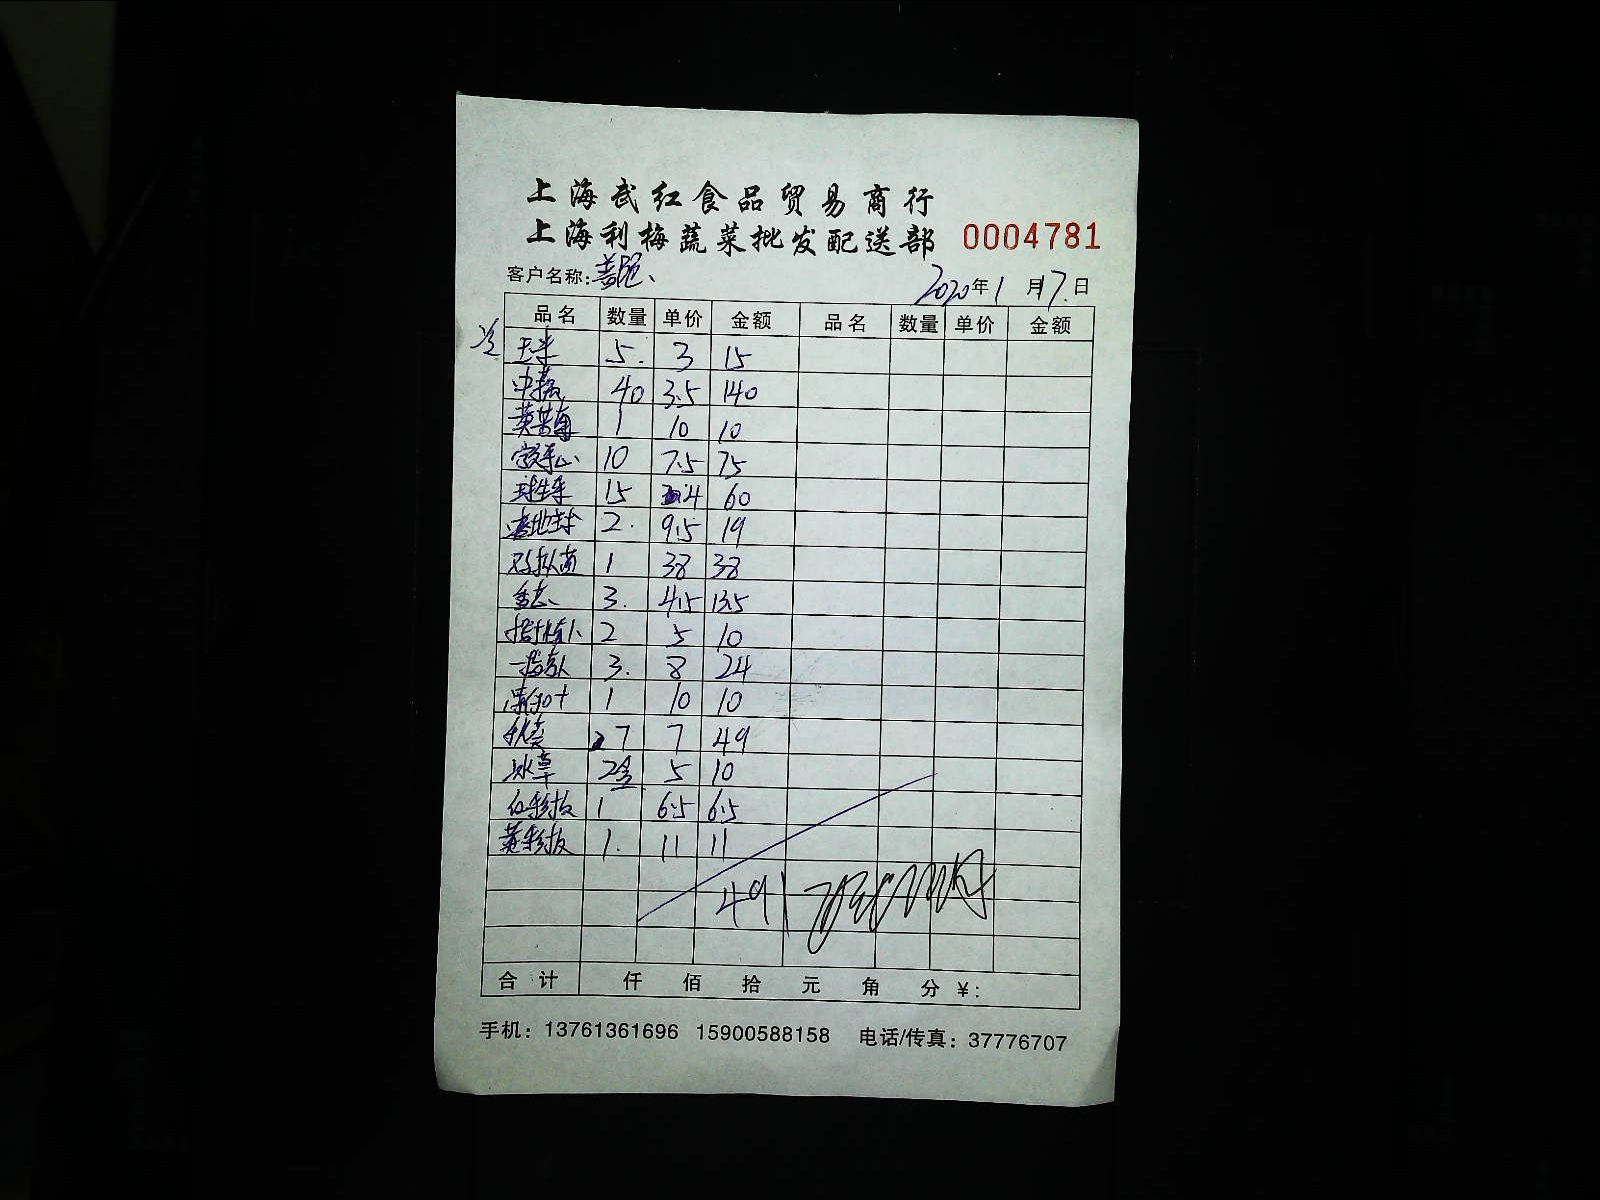 上海武红食品贸易商行
上海利梅蔬菜批发配送部 0004781
客户名称: 2020年1月17.日
品名 数量 单价 金额 品名 数量 单价 金额
玉米 5. 3 15
中藕 40 3.5 140
1 10 10
10 7.5 75
球生菜 15 4 60
2. 9.5 19
1 38 38
3. 4.5 13.5
2 5 10
3. 8 24
1 10 10
秋葵 7 7 49
冰草 2盒 5 10
红彩椒 1 6.5 6.5
黄彩椒 1. 11 11
491
合计 仟 佰 拾 元 角 分 ¥:
手机: 13761361696 15900588158 电话/传真: 37776707